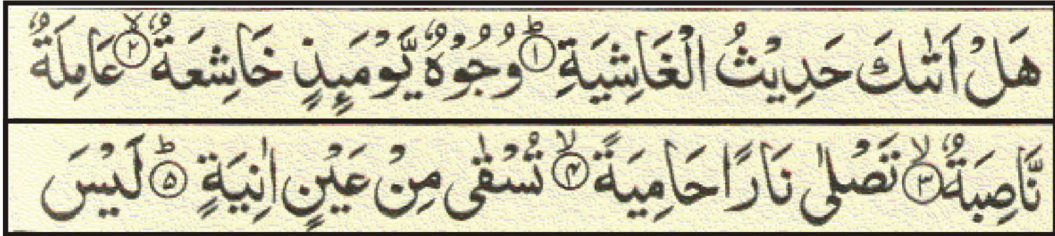 هَلْ اَتٰىكَ حَدِيْثُ الْغَاشِيَةِؕ۝۱ وُجُوْهٌ يَّوْمَىِٕذٍ خَاشِعَةٌۙ۝۲ عَامِلَةٌ
نَّاصِبَةٌۙ۝۳ تَصْلٰى نَارًا حَامِيَةًۙ۝۴ تُسْقٰى مِنْ عَيْنٍ اٰنِيَةٍؕ۝۵ لَيْسَ